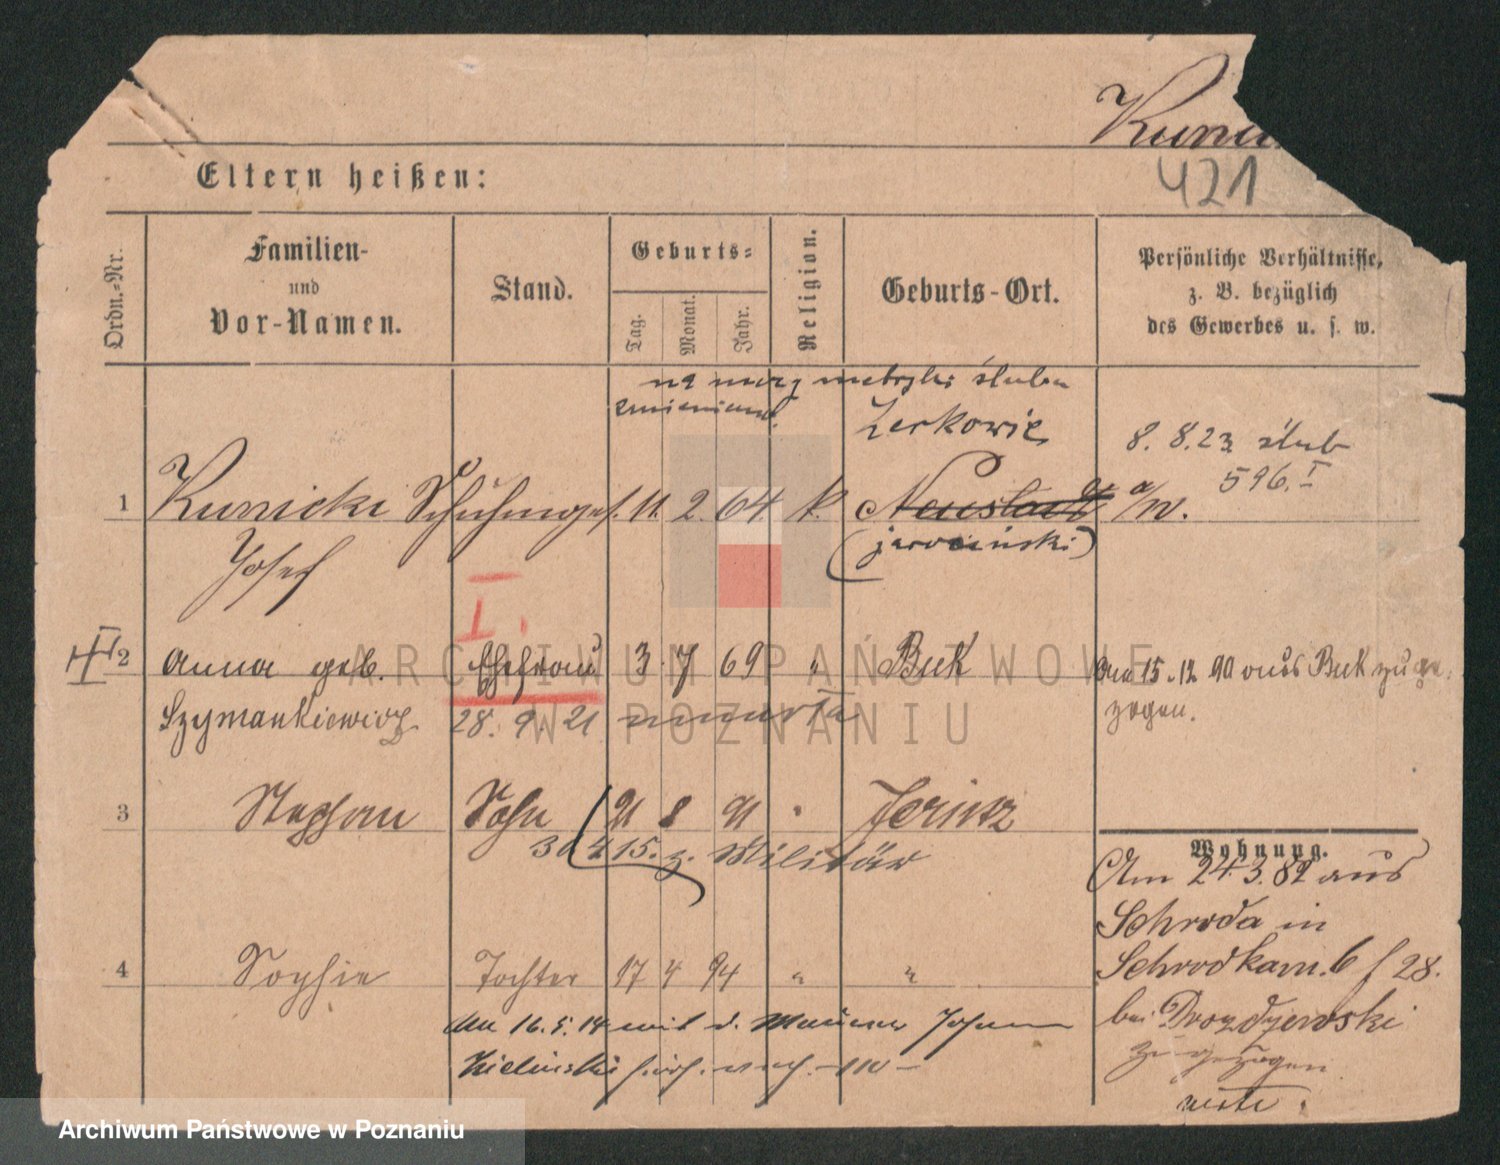 421
Eltern heißen:
Ordn.-Nr.
Familien-
und
Vor-Namen.
Stand.
Geburts-
Tag.
Monat.
Jahr.
Religion.
Geburts-Ort.
Persönliche Verhältnisse,
z. B. bezüglich
des Gewerbes u. s. w.
na mocy metryki ślubu
zmieniono.
Zerkowie
8. 8. 23 ślub
596. I
1 Kunicki Schuhmges. 11. 2. 64. k. Neustadt a/W.
Josef
(jarociński)
I.
2 Anna geb. Ehefrau 3 7 69 " Buk
Am 15. 12 90 aus Buk zuge-
zogen.
Szymankiewicz 28. 9. 21 umarła
3 Stephan Sohn 21 8 91 " Jersitz
30 4 15. z. Militär
Wohnung.
Am 24. 3. 82 aus
Schroda in
4 Sophie Tochter 17 4 94 " "
Schrodkam. 6 f 28.
Am 16. 5. 14 mit d. Maurer Johann
bei Drozdzewski
Zielinski
zugezogen
ARCHIWUM PAŃSTWOWE
W POZNANIU
Archiwum Państwowe w Poznaniu